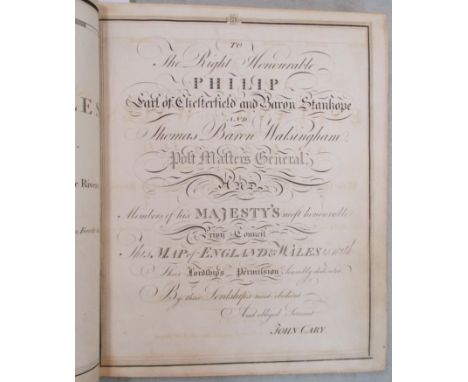 TO
The Right Honourable
PHILIP
Earl of Chesterfield and Baron Stanhope
AND
Thomas, Baron Walsingham,
Post Masters General,
AND
Members of his MAJESTY'S most honourable
Privy Council
This MAP of ENGLAND & WALES is with
Their Lordships Permission humbly dedicated
By their Lordships most obedient
And obliged Servant
JOHN CARY.
ES
e Rivers